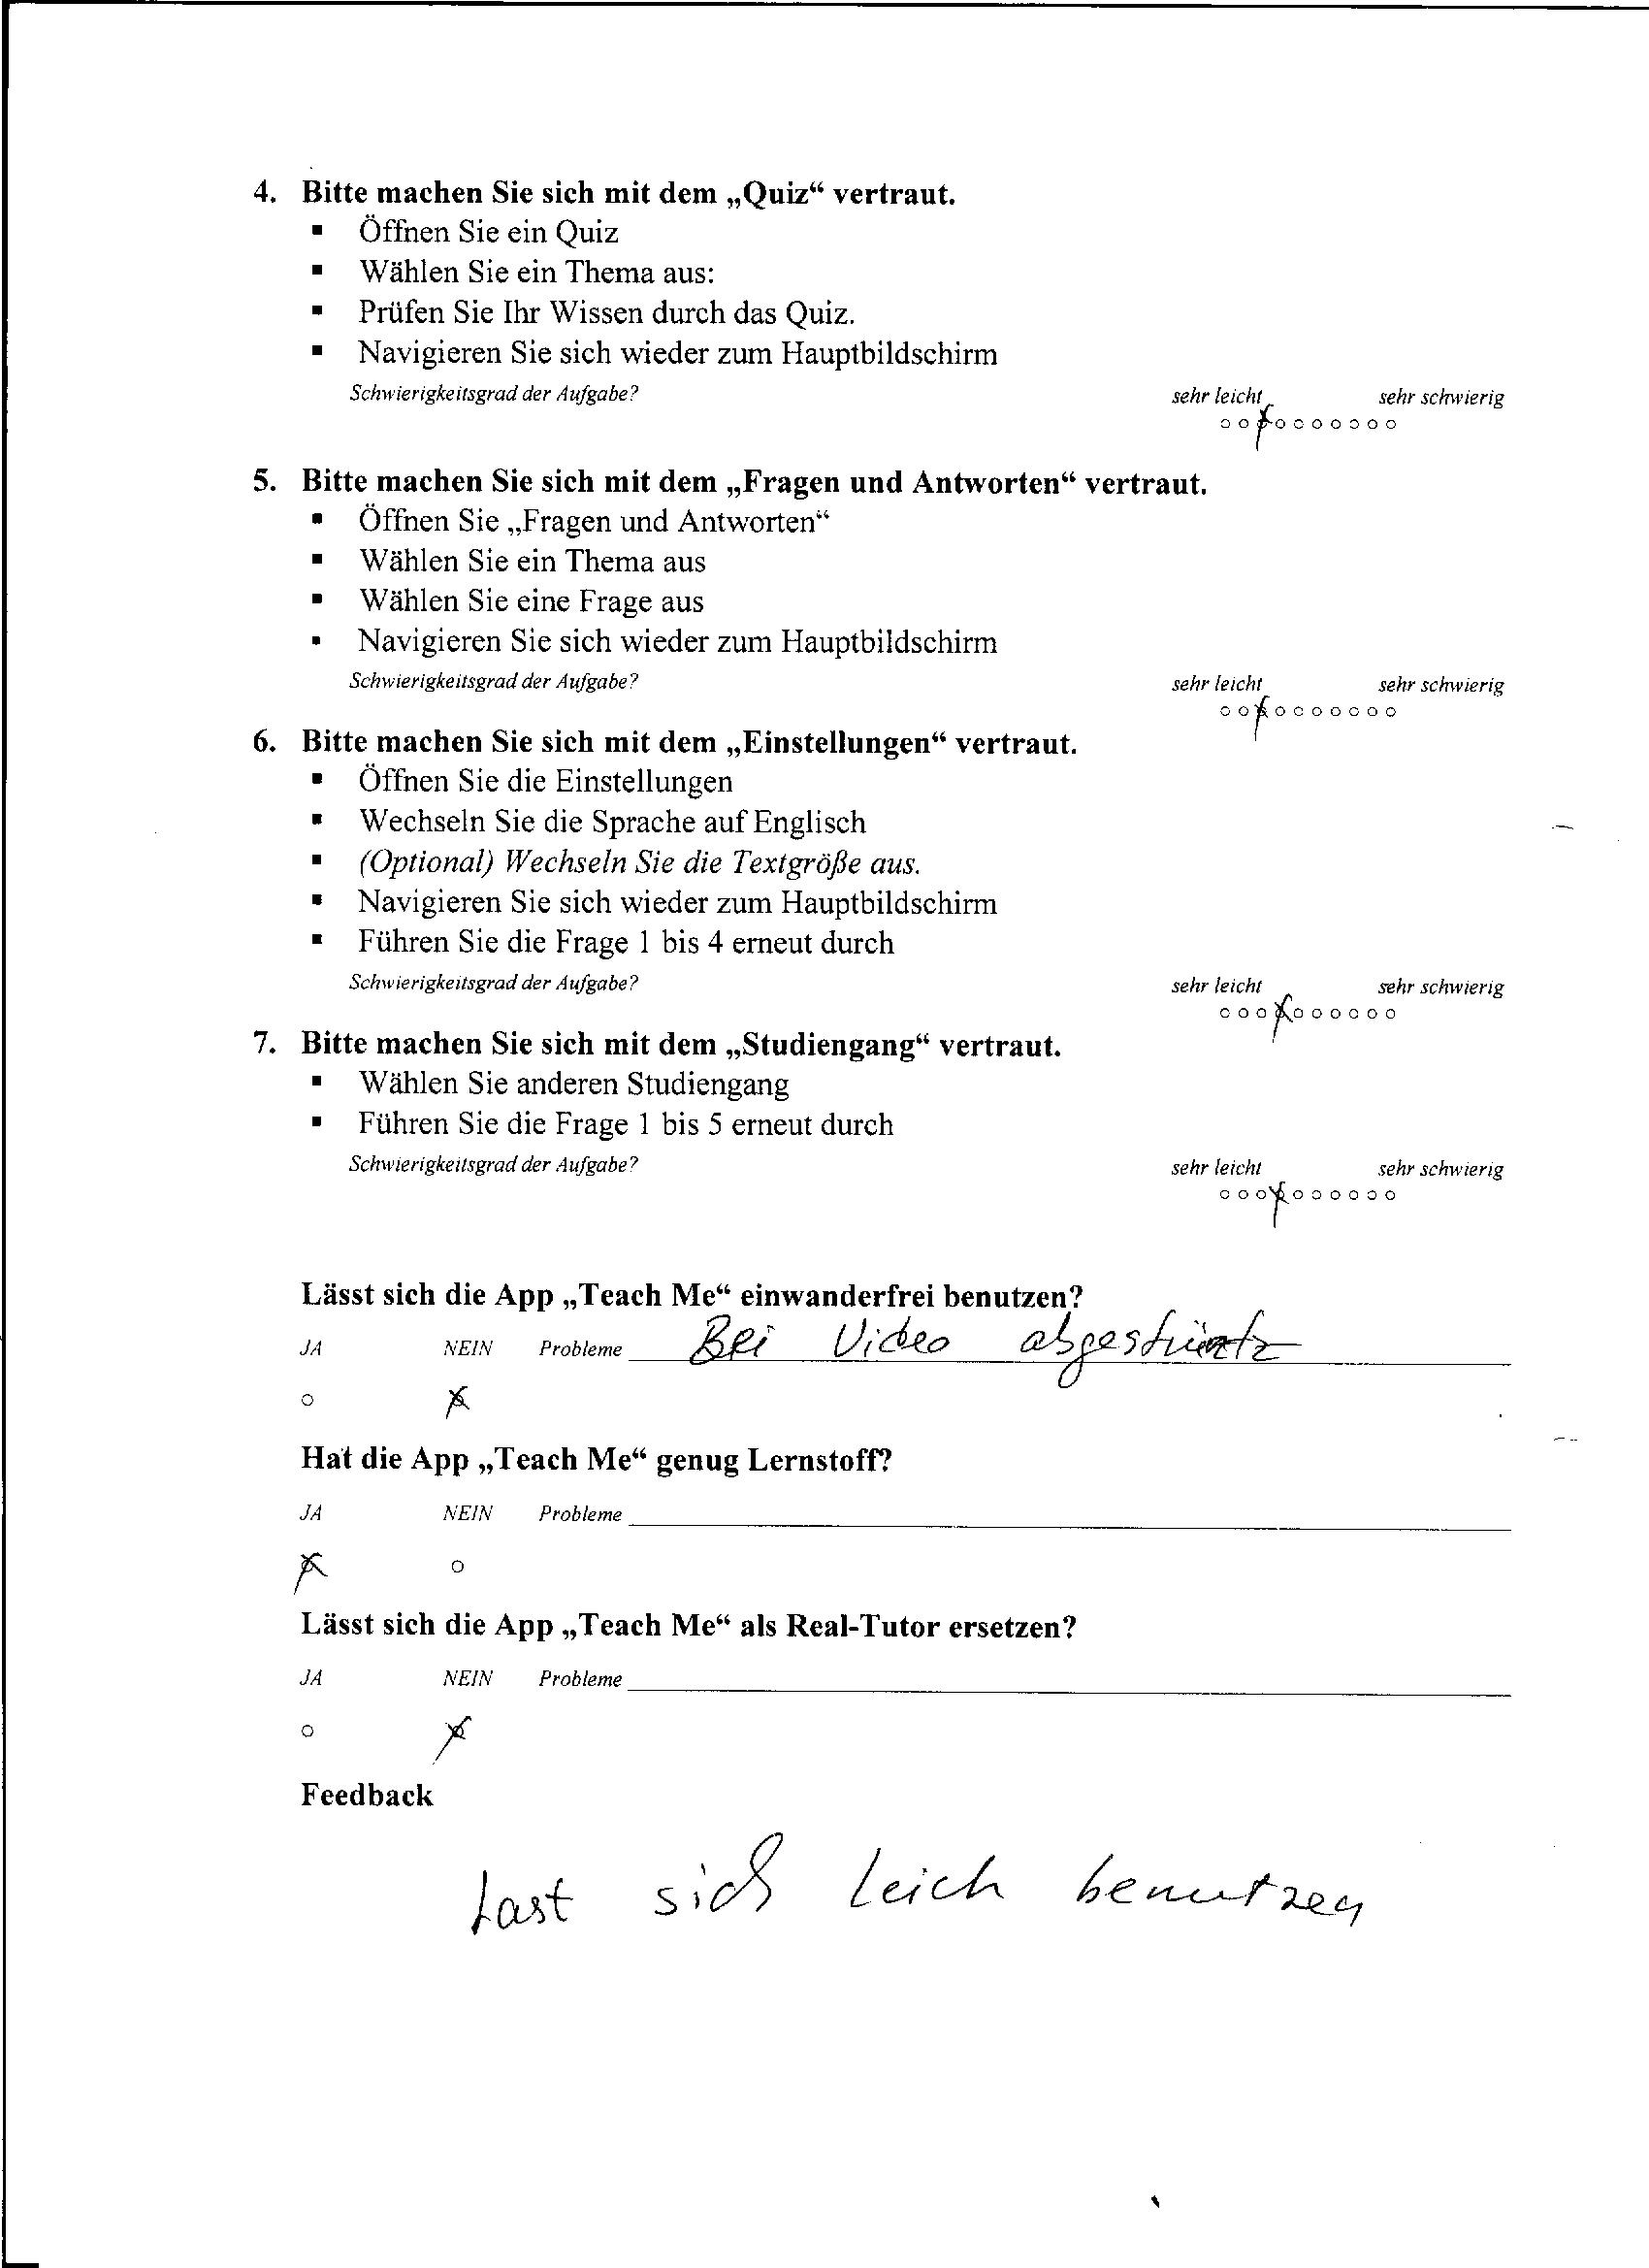 4. Bitte machen Sie sich mit dem „Quiz“ vertraut.
▪ Öffnen Sie ein Quiz
▪ Wählen Sie ein Thema aus:
▪ Prüfen Sie Ihr Wissen durch das Quiz.
▪ Navigieren Sie sich wieder zum Hauptbildschirm
Schwierigkeitsgrad der Aufgabe? sehr leicht sehr schwierig
5. Bitte machen Sie sich mit dem „Fragen und Antworten“ vertraut.
▪ Öffnen Sie „Fragen und Antworten“
▪ Wählen Sie ein Thema aus
▪ Wählen Sie eine Frage aus
▪ Navigieren Sie sich wieder zum Hauptbildschirm
Schwierigkeitsgrad der Aufgabe? sehr leicht sehr schwierig
6. Bitte machen Sie sich mit dem „Einstellungen“ vertraut.
▪ Öffnen Sie die Einstellungen
▪ Wechseln Sie die Sprache auf Englisch
▪ (Optional) Wechseln Sie die Textgröße aus.
▪ Navigieren Sie sich wieder zum Hauptbildschirm
▪ Führen Sie die Frage 1 bis 4 erneut durch
Schwierigkeitsgrad der Aufgabe? sehr leicht sehr schwierig
7. Bitte machen Sie sich mit dem „Studiengang“ vertraut.
▪ Wählen Sie anderen Studiengang
▪ Führen Sie die Frage 1 bis 5 erneut durch
Schwierigkeitsgrad der Aufgabe? sehr leicht sehr schwierig
Lässt sich die App „Teach Me“ einwanderfrei benutzen?
JA NEIN Probleme Bei Video abgestürtz
Hat die App „Teach Me“ genug Lernstoff?
JA NEIN Probleme
Lässt sich die App „Teach Me“ als Real-Tutor ersetzen?
JA NEIN Probleme
Feedback
Last sich leich benutzen